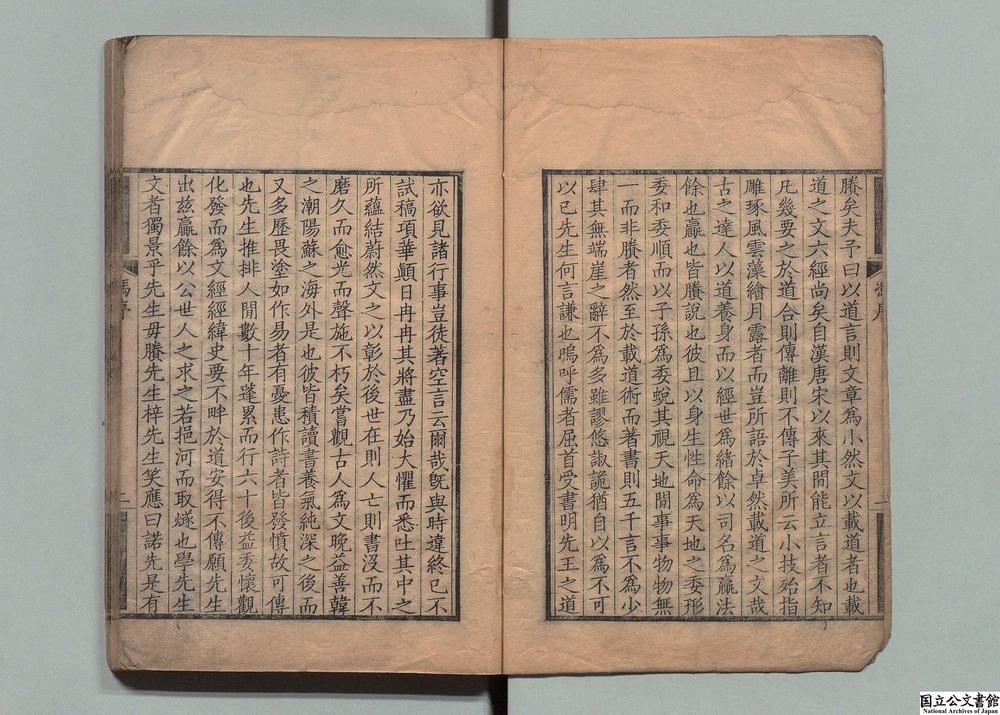 賸矣夫予曰以道言則文章為小然文以載道者也載
道之文六經尚矣自漢唐宋以來其閒能立言者不知
凡幾要之於道合則傳離則不傳子美所云小技殆指
雕琢風雲藻繪月露者而豈所語於卓然載道之文哉
古之達人以道養身而以經世為緒餘以司名為贏法
餘也贏也皆賸說也彼且以身生性命為天地之委形
委和委順而以子孫為委蛻其視天地閒事事物物無
一而非賸者然至於載道術而著書則五千言不為少
肆其無端崖之辭不為多雖謬悠諔詭猶自以為不可
以已先生何言謙也嗚呼儒者屈首受書明先王之道
亦欲見諸行事豈徒著空言云爾哉旣與時違終已不
試稿項華顛日冉冉其將盡乃始大懼而悉吐其中之
所蘊結蔚然文之以彰於後世在則人亡則書沒而不
磨久而愈光而聲施不朽矣嘗觀古人為文晚益善韓
之潮陽蘇之海外是也彼皆積讀書養氣純深之後而
又多歷畏塗如作易者有憂患作詩者皆發憤故可傳
也先生推排人閒數十年蓬累而行六十後益委懷觀
化發而爲文經經緯史要不畔於道安得不傳願先生
出玆贏餘以公世人之求之若挹河而取燧也學先生
文者獨景乎先生毋賸先生梓先生笑應曰諾先是有
馮序
二
国立公文書館
National Archives of Japan